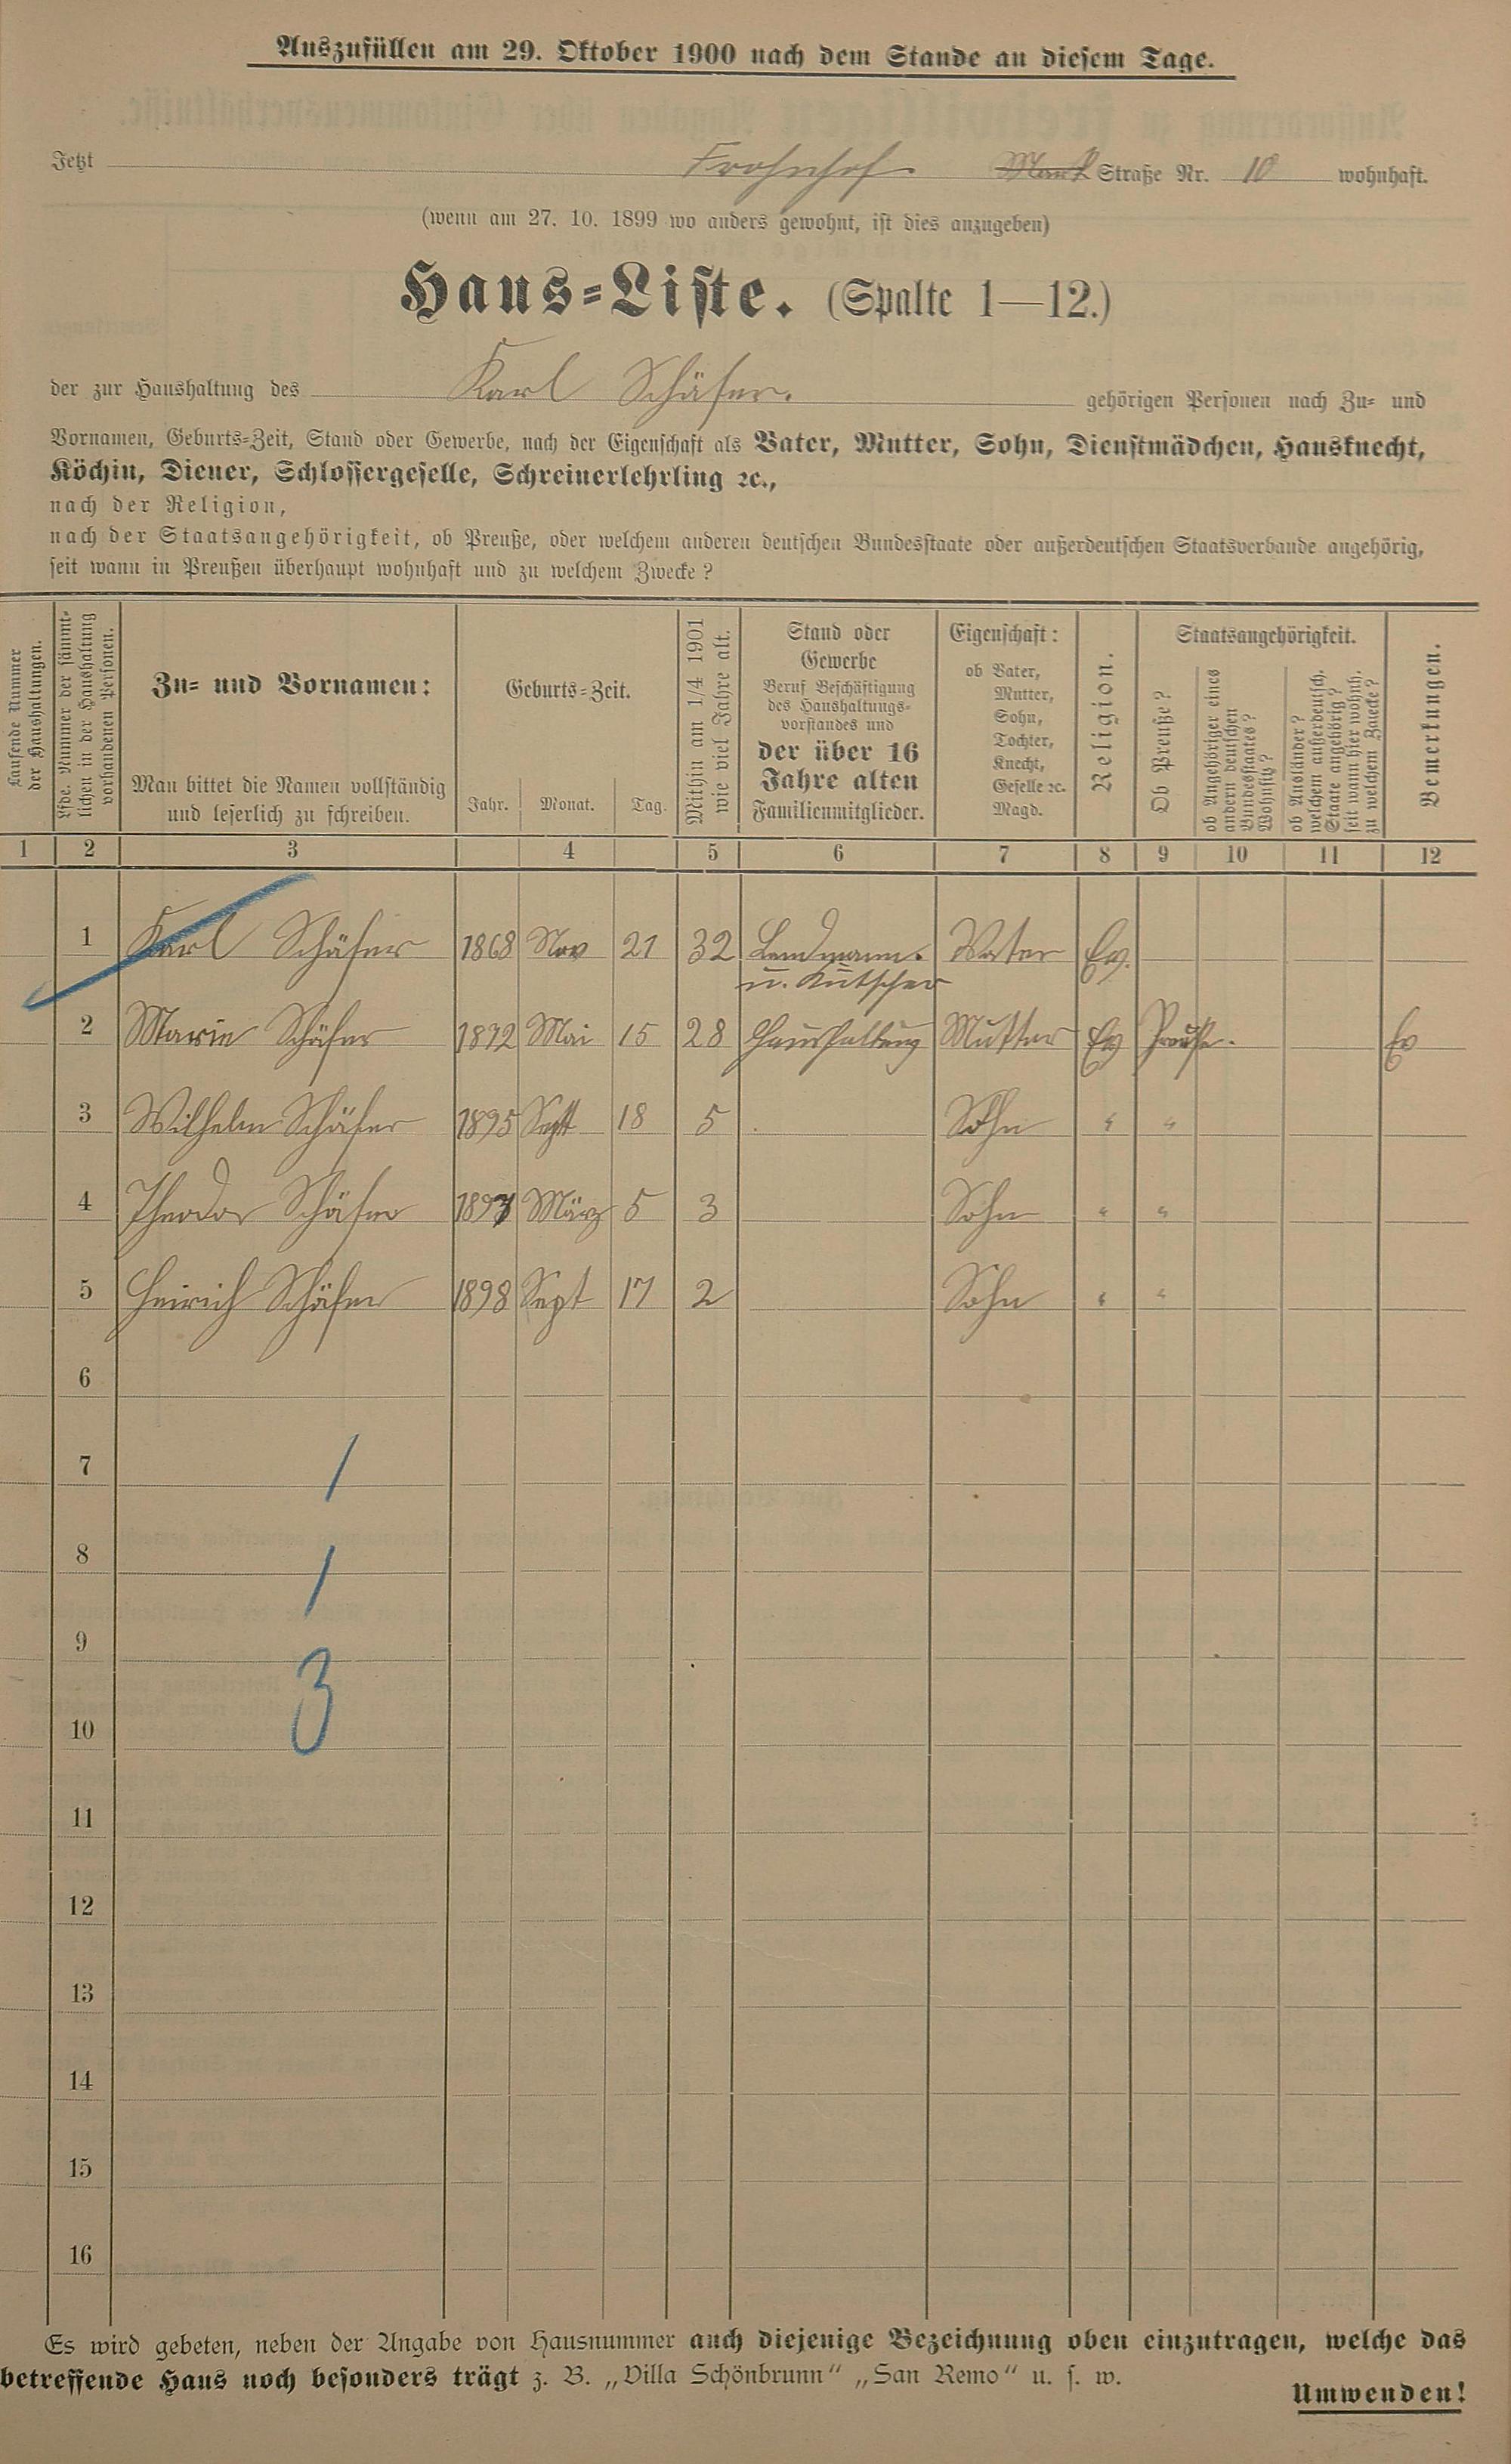 Auszufüllen am 29. Oktober 1900 nach dem Stande an diesem Tage.
Jetzt Frohnhof Straße Nr. 10 wohnhaft.
(wenn am 27. 10. 1899 wo anders gewohnt, ist dies anzugeben)
Haus-Liste. (Spalte 1—12.)
der zur Haushaltung des Karl Schäfer. gehörigen Personen nach Zu- und
Vornamen, Geburts-Zeit, Stand oder Gewerbe, nach der Eigenschaft als Vater, Mutter, Sohn, Dienstmädchen, Hausknecht,
Köchin, Diener, Schlossergeselle, Schreinerlehrling ꝛc.,
nach der Religion,
nach der Staatsangehörigkeit, ob Preuße, oder welchem anderen deutschen Bundesstaate oder außerdeutschen Staatsverbande angehörig,
seit wann in Preußen überhaupt wohnhaft und zu welchem Zwecke?
Laufende Nummer
der Haushaltungen.
Lfde. Nummer der sämmt-
lichen in der Haushaltung
vorhandenen Personen.
Zu- und Vornamen:
Man bittet die Namen vollständig
und leserlich zu schreiben.
Geburts-Zeit.
Jahr. Monat. Tag.
Mithin am 1/4 1901
wie viel Jahre alt.
Stand oder
Gewerbe
Beruf Beschäftigung
des Haushaltungs-
vorstandes und
der über 16
Jahre alten
Familienmitglieder.
Eigenschaft:
ob Vater,
Mutter,
Sohn,
Tochter,
Knecht,
Geselle ꝛc.
Magd.
Religion.
Staatsangehörigkeit.
Ob Preuße?
ob Angehöriger eines
andern deutschen
Bundesstaates?
Wohnsitz?
ob Ausländer?
welchem außerdeutsch.
Staate angehörig?
seit wann hier wohnh.
zu welchem Zwecke?
Bemerkungen.
1 2 3 4 5 6 7 8 9 10 11 12
1 Karl Schäfer 1868 Nov 21 32 Landmann. Vater Ev.
u. Kutscher
2 Marie Schäfer 1872 Mai 15 28 Haushaltung Mutter Ev Preuße. Ev
3 Wilhelm Schäfer 1895 Sept 18 5 Sohn " "
4 Theodor Schäfer 1897 März 5 3 Sohn " "
5 Heinrich Schäfer 1898 Sept 17 2 Sohn " "
6
7 /
8 /
9
3
10
11
12
13
14
15
16
Es wird gebeten, neben der Angabe von Hausnummer auch diejenige Bezeichnung oben einzutragen, welche das
betreffende Haus noch besonders trägt z. B. „Villa Schönbrunn" „San Remo" u. s. w.
Umwenden!